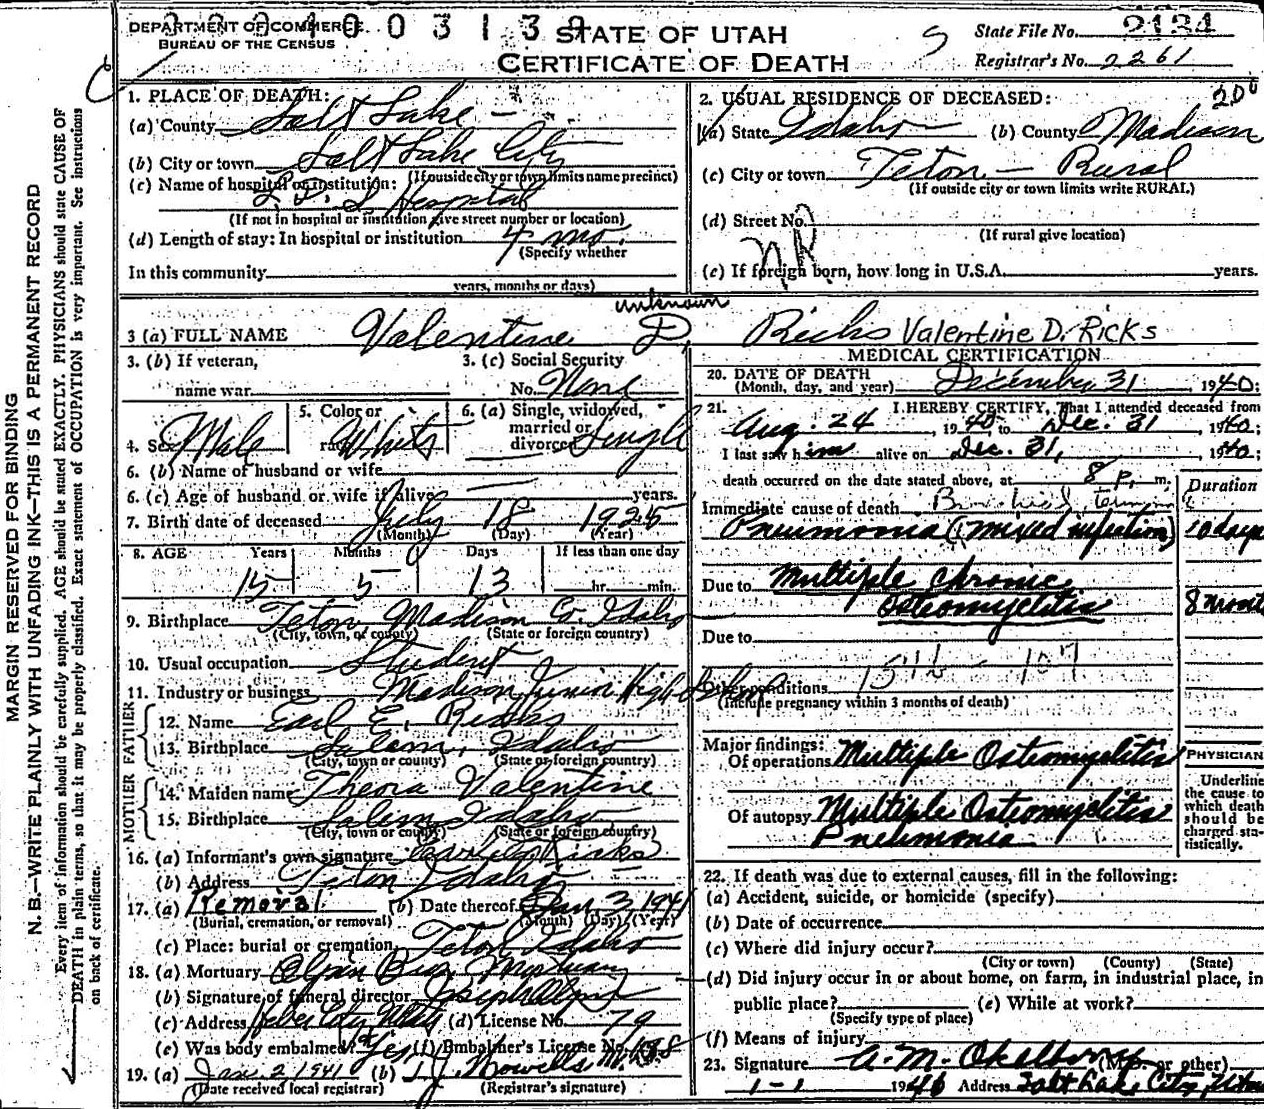 DEPARTMENT OF COMMERCE
BUREAU OF THE CENSUS
STATE OF UTAH
CERTIFICATE OF DEATH
State File No. 2134
Registrar's No. 2261
MARGIN RESERVED FOR BINDING
N. B.—WRITE PLAINLY WITH UNFADING INK—THIS IS A PERMANENT RECORD
Every item of information should be carefully supplied. AGE should be stated EXACTLY. PHYSICIANS should state CAUSE OF
DEATH in plain terms, so that it may be properly classified. Exact statement of OCCUPATION is very important. See instructions
on back of certificate.
1. PLACE OF DEATH:
(a) County Salt Lake
(b) City or town Salt Lake City
(If outside city or town limits name precinct)
(c) Name of hospital or institution:
L. D. S Hospital
(If not in hospital or institution give street number or location)
(d) Length of stay: In hospital or institution 4 mo.
(Specify whether
In this community
years, months or days)
2. USUAL RESIDENCE OF DECEASED: 200
(a) State Idaho (b) County Madison
(c) City or town Teton — Rural
(If outside city or town limits write RURAL)
(d) Street No.
(If rural give location)
NR
(e) If foreign born, how long in U.S.A. years.
unknown
3 (a) FULL NAME Valentine D. Ricks Valentine D. Ricks
3. (b) If veteran,
name war
3. (c) Social Security
No. None
4. Sex Male
5. Color or
race White
6. (a) Single, widowed,
married or
divorced Single
6. (b) Name of husband or wife
6. (c) Age of husband or wife if alive years.
7. Birth date of deceased July 18 1925
(Month) (Day) (Year)
8. AGE Years Months Days If less than one day
15 5 13 hr. min.
9. Birthplace Teton, Madison Co. Idaho
(City, town, or county) (State or foreign country)
10. Usual occupation Student
11. Industry or business Madison Junior High School
FATHER
12. Name Earl E. Ricks
13. Birthplace Salem, Idaho
(City, town or county) (State or foreign country)
MOTHER
14. Maiden name Theora Valentine
15. Birthplace Salem Idaho
(City, town or county) (State or foreign country)
16. (a) Informant's own signature Ricks
(b) Address Teton Idaho
17. (a) Removal (b) Date thereof Jan 3 1941
(Burial, cremation, or removal) (Month) (Day) (Year)
(c) Place: burial or cremation Teton Idaho
18. (a) Mortuary Olpin Bros Mortuary
(b) Signature of funeral director Joseph Olpin
(c) Address Heber City, Utah (d) License No. 79
(e) Was body embalmed? Yes (f) Embalmer's License No.
19. (a) Jan. 2 1941 (b) Howells M.D.
(Date received local registrar) (Registrar's signature)
MEDICAL CERTIFICATION
20. DATE OF DEATH
(Month, day, and year) December 31 1940;
21. I HEREBY CERTIFY, That I attended deceased from
Aug. 24 1940 to Dec. 31 1940;
I last saw him alive on Dec. 31, 1940;
death occurred on the date stated above, at 8 P. m.
Duration
Immediate cause of death Bronchial terminal
Pneumonia (mixed infection) 10 days
Due to Multiple chronic
Osteomyelitis 8 months
Due to
154b - 107
Other conditions
(Include pregnancy within 3 months of death)
Major findings:
Of operations Multiple Osteomyelitis
Of autopsy Multiple Osteomyelitis
Pneumonia
PHYSICIAN
Underline
the cause to
which death
should be
charged sta-
tistically.
22. If death was due to external causes, fill in the following:
(a) Accident, suicide, or homicide (specify)
(b) Date of occurrence
(c) Where did injury occur?
(City or town) (County) (State)
(d) Did injury occur in or about home, on farm, in industrial place, in
public place? (e) While at work?
(Specify type of place)
(f) Means of injury
23. Signature A. M. Okelberry (M.D. or other)
1-1 1940 Address Salt Lake City, Utah